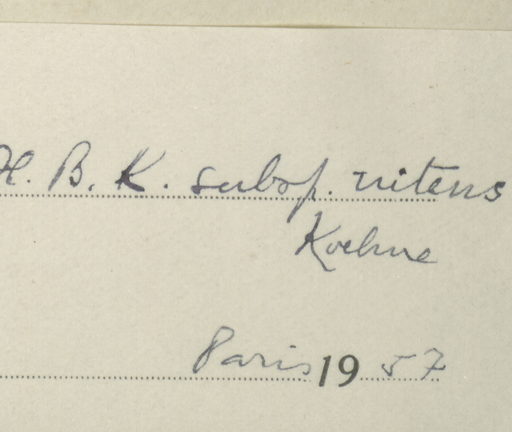 H. B. K. subsp. nitens
Koehne
Paris 1957